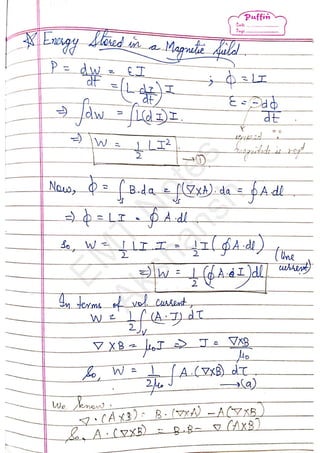 Puffin
Date
Page
☆ Energy Stored in a Magnetic field.
P = dW/dt = εI ; ϕ = LI
= (L dI/dt) I ε = -dϕ/dt
⇒ ∫dW = ∫(L dI) I.
magnitude is
⇒ W = 1/2 LI² →①
Now, ϕ = ∫ₛ B.da = ∫ₛ(∇×A).da = ∮A.dl
⇒ ϕ = LI = ∮A.dl.
So, W = 1/2 LI.I = 1/2 I(∮A.dl) (line current)
⇒ W = 1/2 (∮A.I)dl
In terms of vol current,
W = 1/2 ∫ᵥ (A.J) dτ
∇×B = μ₀J ⇒ J = ∇×B/μ₀
So, W = 1/2μ₀ ∫ A.(∇×B) dτ →(a)
We know:
∇.(A×B) = B.(∇×A) - A(∇×B)
So A.(∇×B) = B.B - ∇(A×B)
EMT Notes